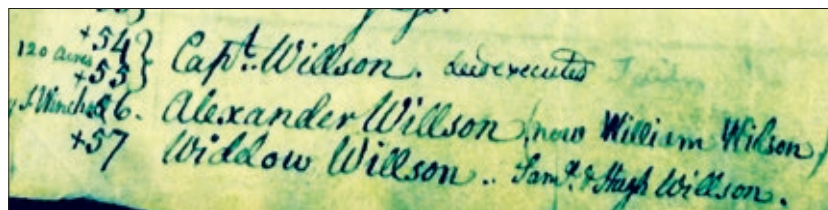 +54
120 acres +55 } Capt. Willson. deed executed
56. Alexander Willson (now William Wilson)
+57 Widdow Willson.. Saml. & Hugh Willson.